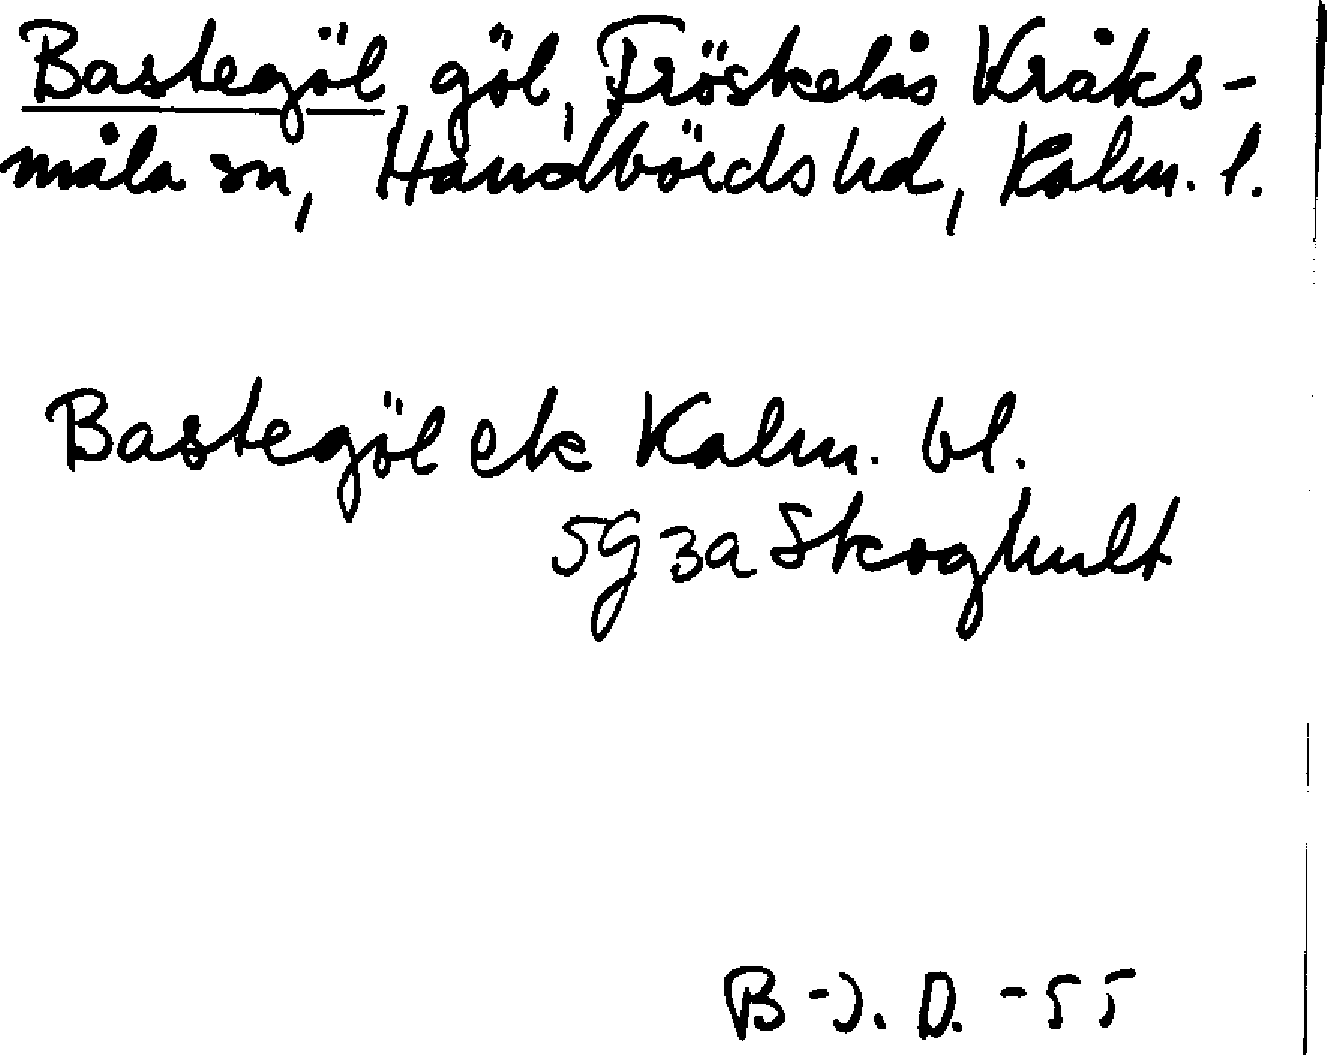 Bastegöl, göl, Fröskelås Kråks-
måla sn, Handbörds hd, Kalm. l.
Bastegöl ek Kalm. bl.
5G 3a Skoghult
B-J. D. -55